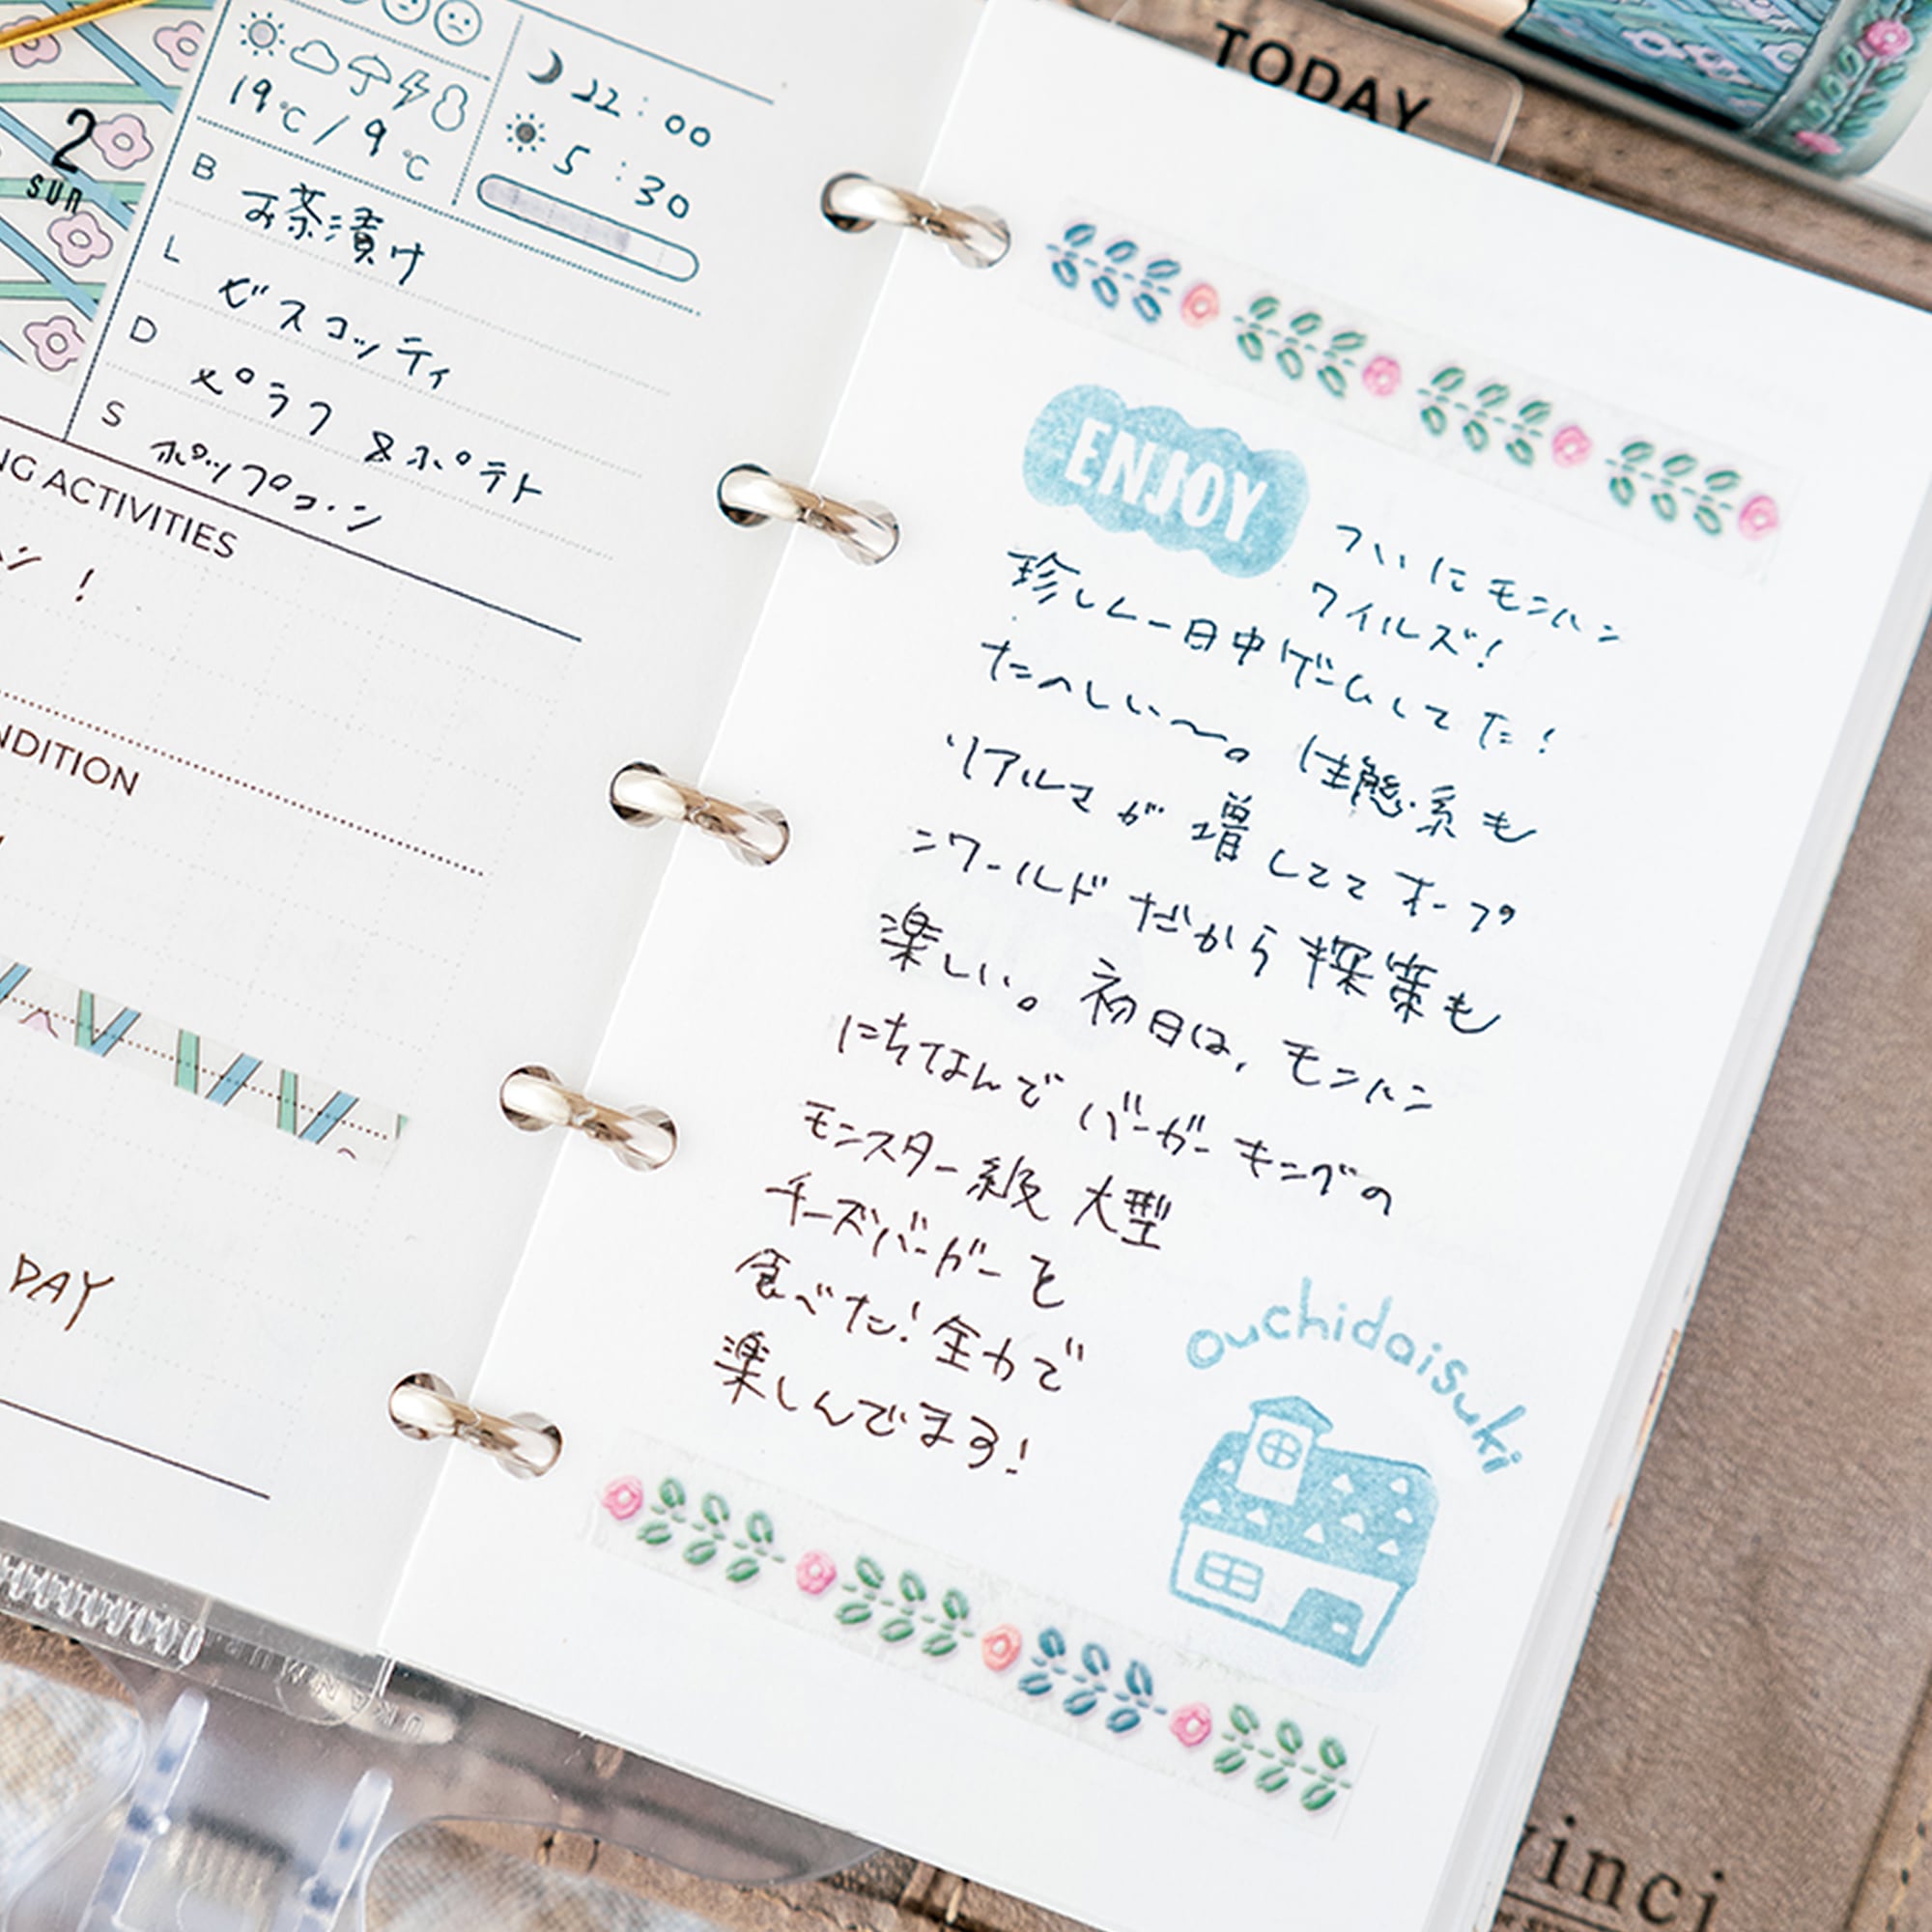 22:00
19℃/9℃
5:30
2
SUN
B お茶漬け
L ビスコッティ
D ピラフ &ポテト
S ポップコーン
NG ACTIVITIES
ン!
NDITION
DAY
TODAY
ENJOY
ついにモンハン
ワイルズ!
珍しく一日中ゲームしてた!
たのしい〜。生態系も
リアルさが増しててオープ
ンワールドだから探索も
楽しい。初日は、モンハン
にちなんでバーガーキングの
モンスター級大型
チーズバーガーを
食べた!全力で
楽しんでます!
ouchidaisuki
vinci